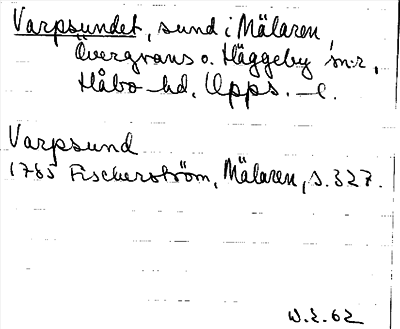 Varpsundet, sund i Mälaren,
Övergrans o. Häggeby sn:r,
Håbo hd, Upps. l.
Varpsund
1785 Fischerström, Mälaren, s. 327.
W.Z. 62